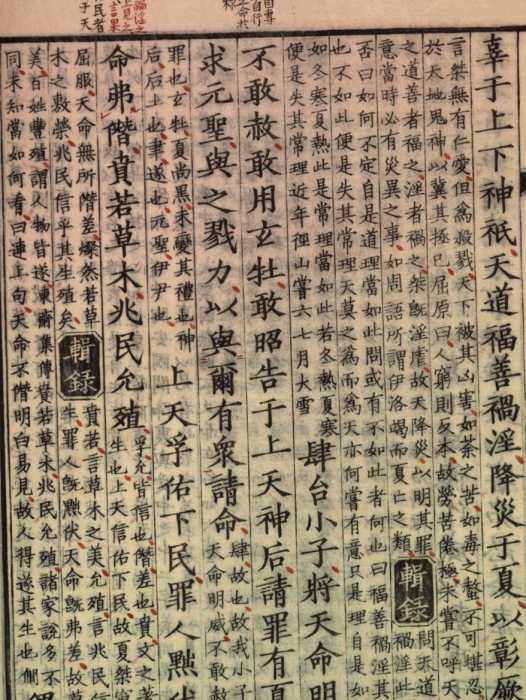 辜于上下神祇天道福善禍淫降災于夏以彰厥
言桀無有仁愛但為殺戮天下被其凶害如荼之苦如毒之螫不可堪忍
於天地鬼神以冀其拯已屈原曰人窮則反本故勞苦倦極未嘗不呼天
之道善者福之淫者禍之桀既淫虐故天降災以明其罪
意當時必有災異之事如周語所謂伊洛竭而夏亡之類
輯錄
問天道
禍淫此
否曰如何不定自是道理當如此問或有不如此者何也曰福善禍淫其
也不如此便是失其常理天莫之為而為天亦何嘗有意只是理自如
如冬寒夏熱此是常理當如此若冬熱夏寒
便是失其常理近年徑山嘗六七月大雪
肆台小子將天命明
不敢赦敢用玄牡敢昭告于上天神后請罪有夏
求元聖與之戮力以與爾有衆請命
肆故也故我小子
天命明威不敢赦
罪也玄牡夏尚黑未變其禮也神
后后土也聿遂也元聖伊尹也
上天孚佑下民罪人黜伏
命弗僭賁若草木兆民允殖
孚允皆信也僭差也賁文之著
生也上天信佑下民故夏桀竄
屈服天命無所僭差燦然若草
木之敷榮兆民信乎其生殖矣
輯錄
賁若言草木之美允殖言兆民
生罪人既黜伏天命既弗差故草
美百姓豊殖謂人物皆遂東齋集傳賁若草木兆民允殖諸家說多不
同未知當如何看曰連上句天命不僭明白易見故人得遂其生也